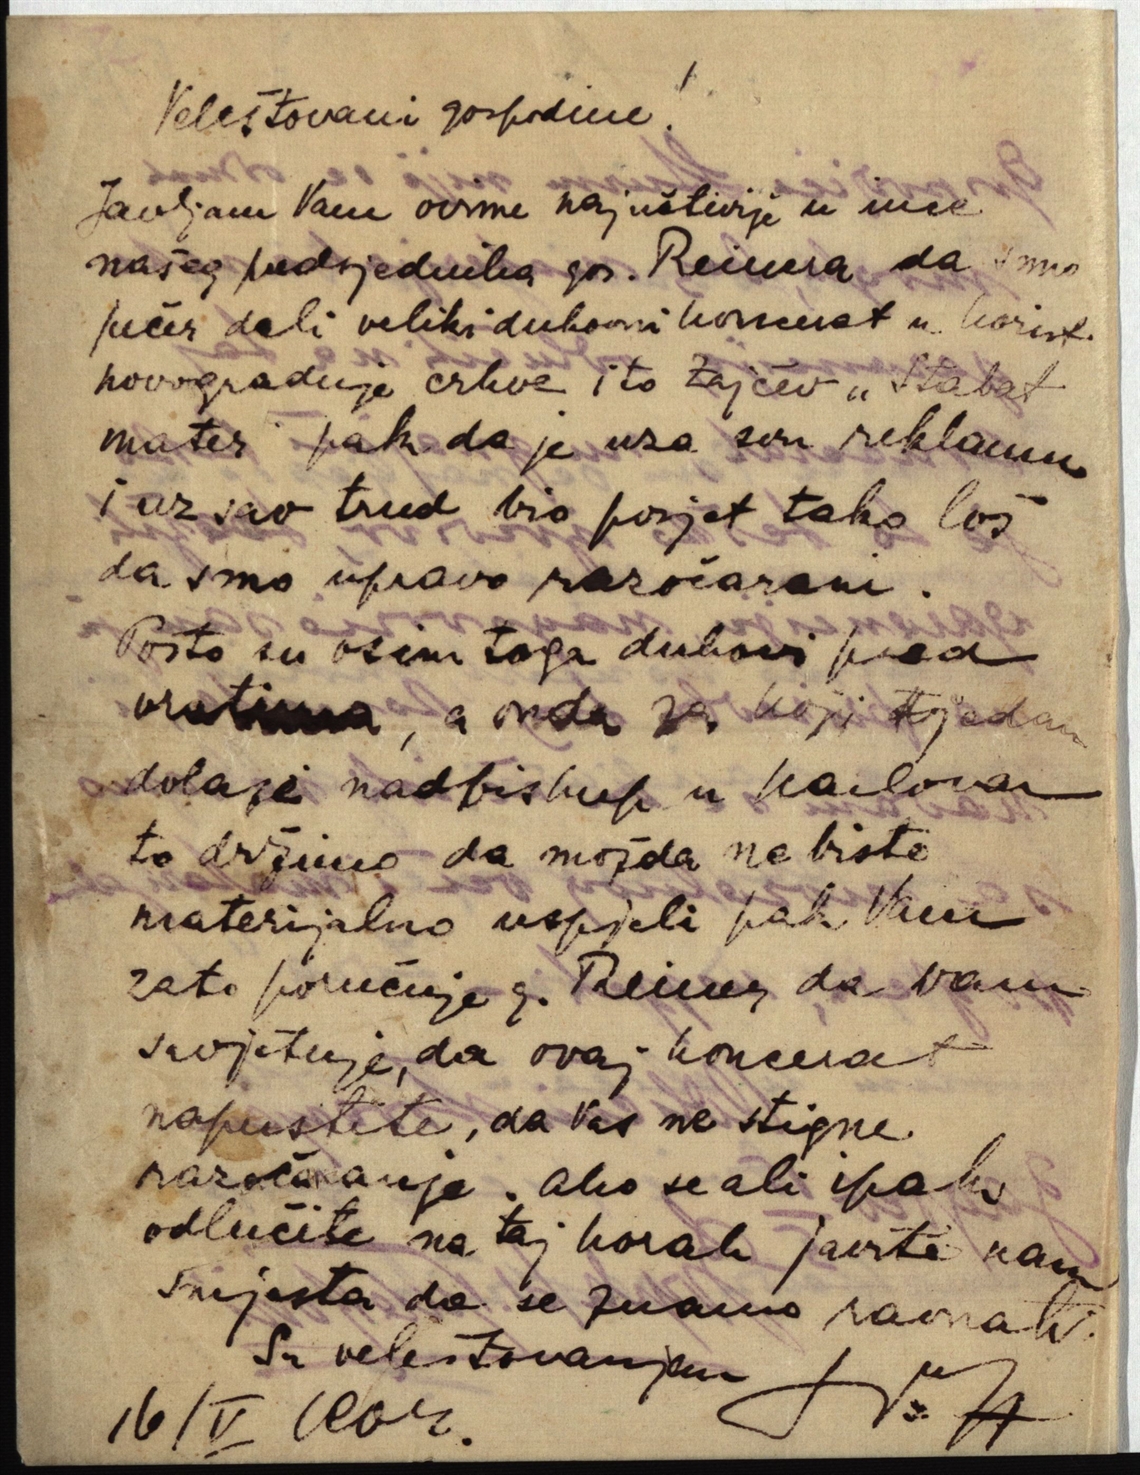 Veleštovani gospodine!
Javljam Vam ovime najuctivije u ime
našeg predsjednika gos. Reinera da smo
jučer dali veliki duhovni koncerat u korist
novogradnje crkve i to Zajčev „Stabat
mater" pak da je uza svu reklamu
i uz sav trud bio posjet tako loš
da smo upravo razočarani.
Pošto su osim toga duhovi pred
vratima, a onda za koji tjedan
dolazi nadbiskup u Karlovac
to držimo da možda ne biste
materijalno uspjeli pak Vam
zato poručuje g. Reiner da vam
savjetuje, da ovaj koncerat
napustite, da Vas ne stigne
razočaranje. Ako se ali ipak
odlučite na taj korak javite nam
smjesta da se znamo ravnati.
Sa veleštovanjem
16/V